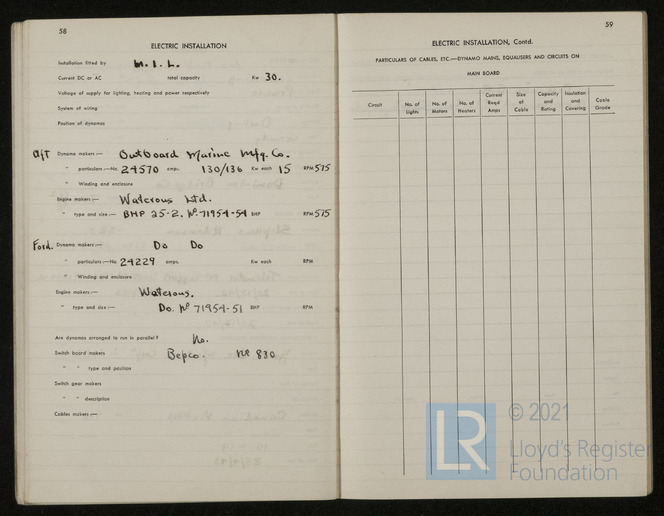 58
ELECTRIC INSTALLATION
Installation fitted by M. I. L.
Current DC or AC total capacity Kw 30.
Voltage of supply for lighting, heating and power respectively
System of wiring
Position of dynamos
Aft Dynamo makers:— Outboard Marine Mfg. Co.
" particulars:—No. 24570 amps. 130/136 Kw each 15 RPM 575
" Winding and enclosure
Engine makers:— Waterous Ltd.
" type and size:— BHP 25-2. No. 71954-54 BHP RPM 575
Ford. Dynamo makers:— Do Do
" particulars:—No 24229 amps. Kw each RPM
" Winding and enclosure
Engine makers:— Waterous.
" type and size:— Do. No 71954-51 BHP RPM
Are dynamos arranged to run in parallel? No.
Switch board makers Bepco. No 830
" " type and position
Switch gear makers
" " description
Cables makers:—
59
ELECTRIC INSTALLATION, Contd.
PARTICULARS OF CABLES, ETC.—DYNAMO MAINS, EQUALISERS AND CIRCUITS ON
MAIN BOARD
Circuit
No. of Lights
No. of Motors
No. of Heaters
Current Reqd Amps
Size of Cable
Capacity and Rating
Insulation and Covering
Cable Grade
LR
© 2021
Lloyd's Register
Foundation